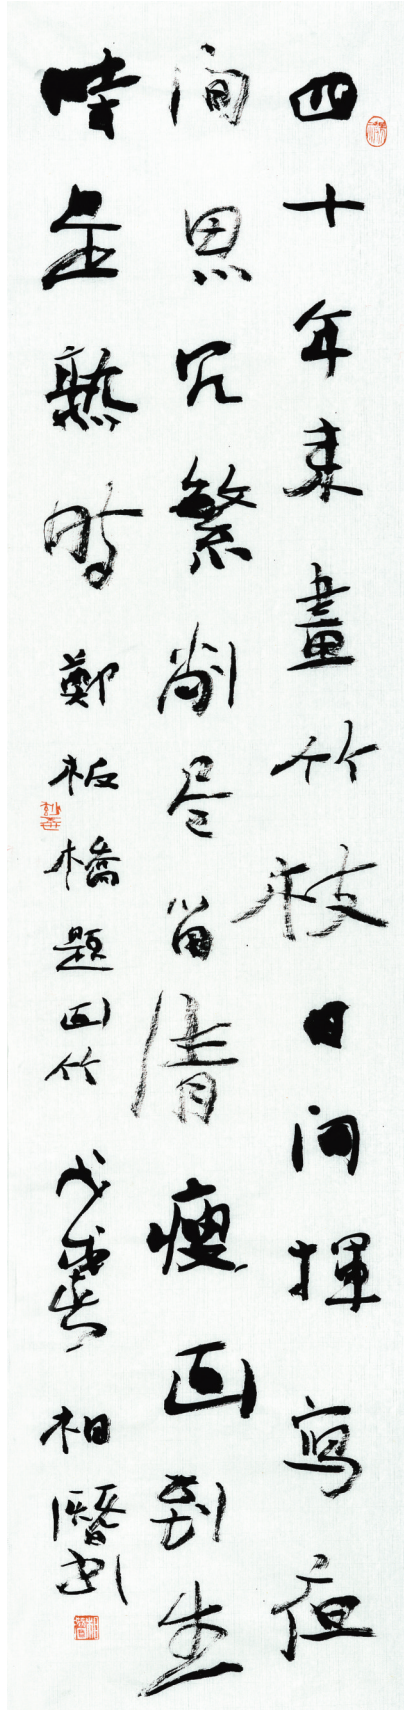 四十年来畫竹枝日间揮寫夜
间思冗繁削尽留清瘦画到生
時是熟时鄭板橋題画竹戊戌春相書